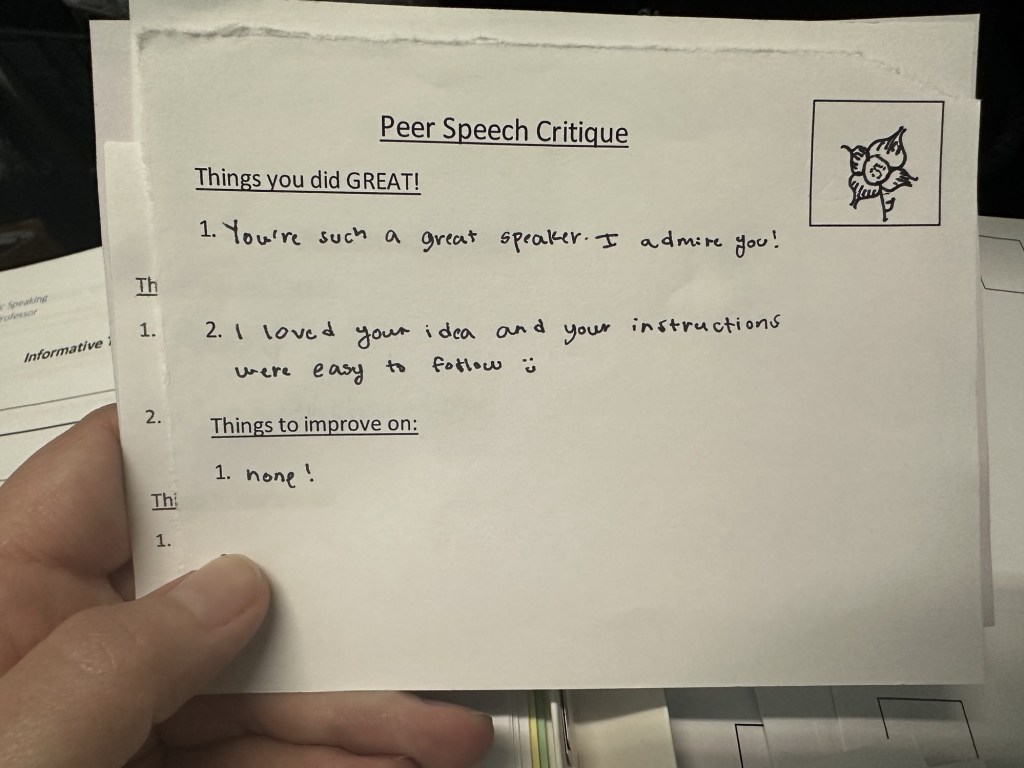 Peer Speech Critique
Things you did GREAT!
1. You're such a great speaker. I admire you!
2. I loved your idea and your instructions
were easy to follow :)
Things to improve on:
1. none!
Th
1.
2.
Thi
1.
Speaking
rofessor
Informative